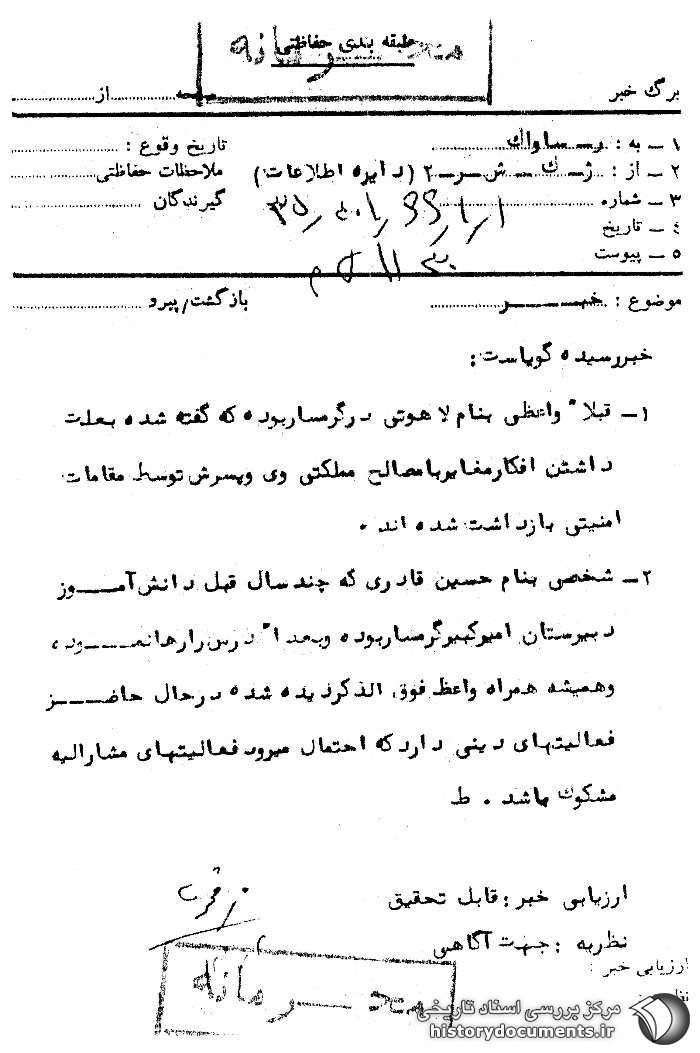 طبقه بندی حفاظتی
محرمانه
برگ خبر
صفحه ............ از ............
۱ ــ به : ر ــ ساواك
۲ ــ از : ژ ــ ك ــ ش ــ ر ــ ۲ (دایره اطلاعات)
۳ ــ شماره
٤ ــ تاریخ
۵ ــ پیوست
تاریخ وقوع :
ملاحظات حفاظتی
گیرندگان
موضوع : خبــــــر
بازگشت/پیرو
خبررسیده گویاست :
۱ــ قبلاً واعظی بنام لاهوتی درگرمساربوده که گفته شده بعلت
داشتن افکارمغایربامصالح مملکتی وی وپسرش توسط مقامات
امنیتی بازداشت شده اند .
۲ــ شخصی بنام حسین قادری که چندسال قبل دانش‌آمــــوز
دبیرستان امیرکبیرگرمساربوده وبعداً درس‌رارهانمـــــود ،
وهمیشه همراه واعظ فوق الذکردیده شده درحال حاضـــر
فعالیتهای دینی داردکه احتمال میرودفعالیتهای مشارالیه
مشکوك باشد . ط
ارزیابی خبر : قابل تحقیق
نظریه : جهت آگاهی
ارزیابی خبر :
محرمانه
مرکز بررسی اسناد تاریخی
historydocuments.ir